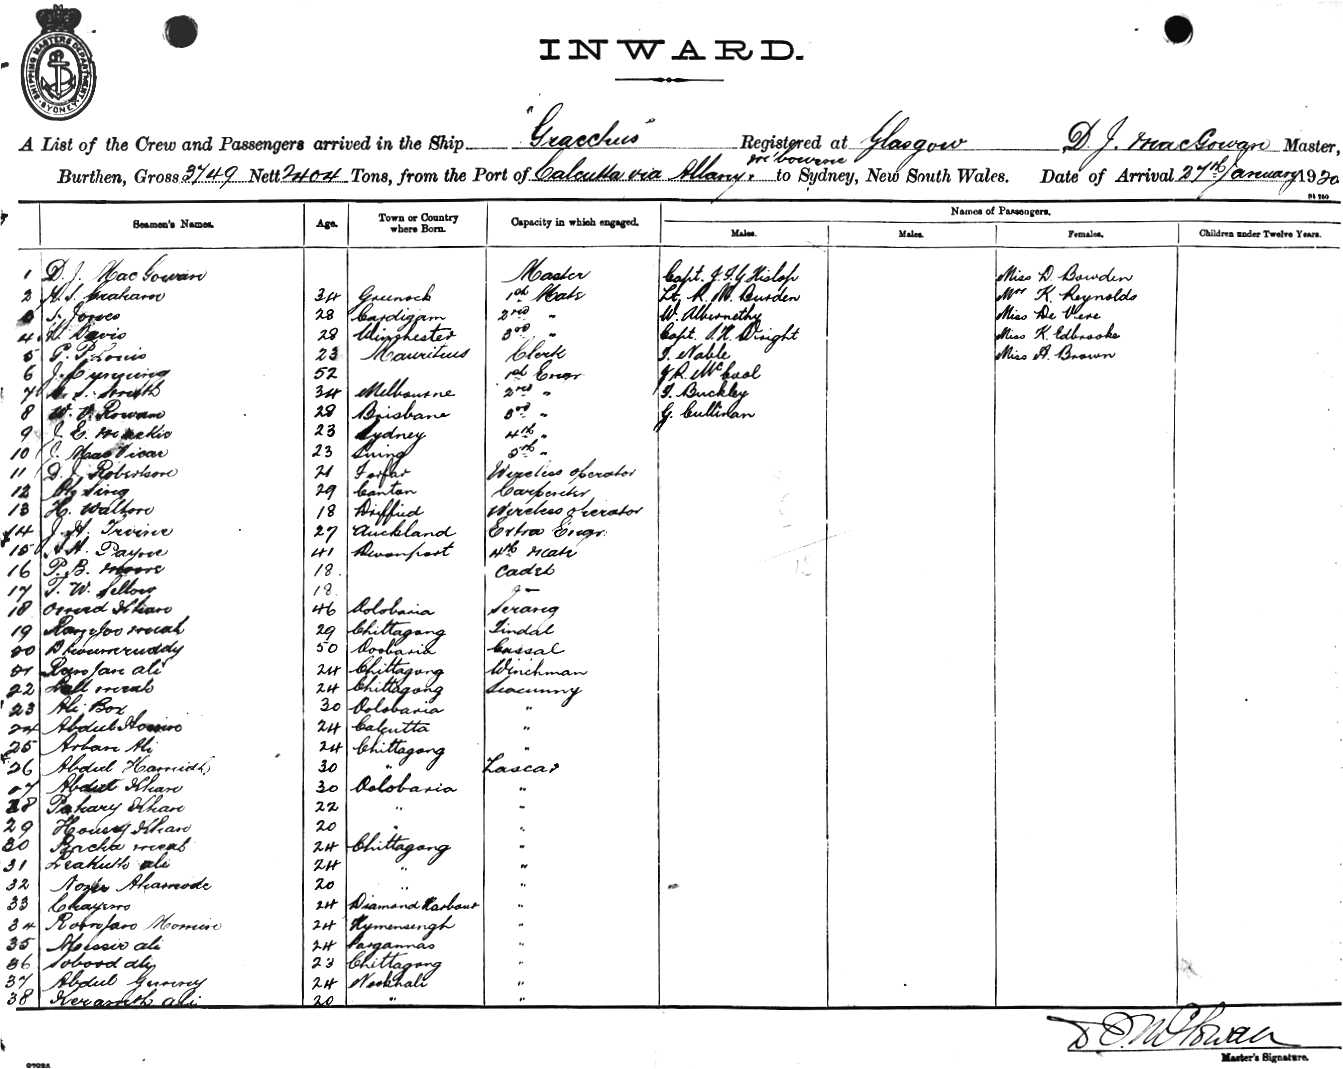 SHIPPING MASTERS DEPARTMENT SYDNEY
INWARD.
A List of the Crew and Passengers arrived in the Ship "Gracchus" Registered at Glasgow D. J. MacGowan Master,
Burthen, Gross 3749 Nett 2404 Tons, from the Port of Calcutta via Albany, Melbourne to Sydney, New South Wales. Date of Arrival 27th January 1920
Seamen's Names. Age. Town or Country where Born. Capacity in which engaged. Names of Passengers.
Males. Males. Females. Children under Twelve Years.
1 D. J. MacGowan Master Capt. Hislop Miss D. Bowden
2 Graham 34 Greenock 1st Mate Lt. R. M. Burden Mrs K. Reynolds
3 Jones 28 Cardigan 2nd " W. Abernethy Miss De Vere
4 Davis 28 Winchester 3rd " Capt. Wright Miss K. Edbrooke
5 G. Louis 23 Mauritius Clerk Noble Miss A. Brown
6 52 1st Engr J. R. McCool
7 Smith 34 Melbourne 2nd " Buckley
8 W. Rowan 28 Brisbane 3rd " G. Cullinan
9 J. E. Mackie 23 Sydney 4th "
10 J. MacVicar 23 5th "
11 D. J. Robertson 21 Forfar Wireless operator
12 Sing 29 Canton Carpenter
13 H. Walton 18 Wireless operator
14 J. H. Irvine 27 Auckland Extra Engr.
15 Payne 41 Devonport 4th Mate
16 P. B. Moore 18 Cadet
17 T. W. 18
18 Khan 46 Oolobaria Serang
19 Meah 29 Chittagong Tindal
20 50 Oolobaria Cassal
21 Ramjan Ali 24 Chittagong Winchman
22 Lall Meah 24 Chittagong Seacunny
23 Ali Box 30 Oolobaria "
24 Abdul 24 Calcutta "
25 Arban Ali 24 Chittagong "
26 Abdul 30 " Lascar
27 Abdul Khan 30 Oolobaria "
28 Khan 22 " "
29 Khan 20 " "
30 Meah 24 Chittagong "
31 Leakuth Ali 24 " "
32 Ahamode 20 " "
33 24 Diamond Harbour "
34 24 Mymensingh "
35 Ali 24 Pargannas "
36 Ali 23 Chittagong "
37 Abdul 24 Noakhali "
38 Keramuth Ali 20 " "
D. J. McGowan
Master's Signature.